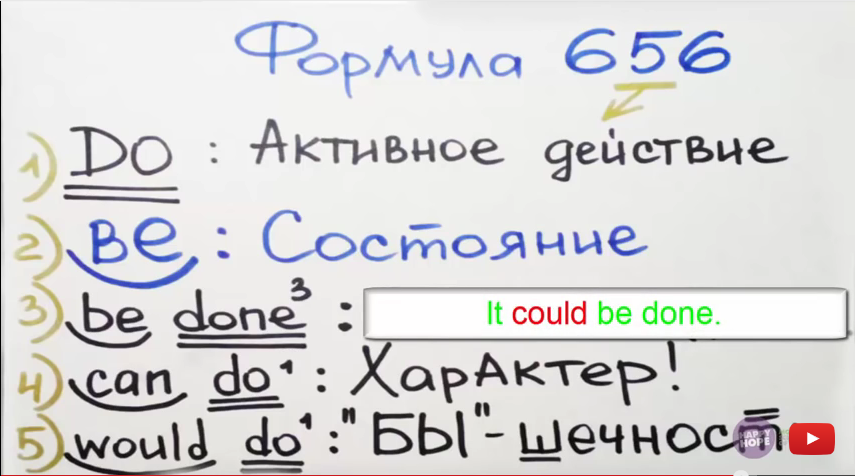 Формула 656
1) DO : Активное действие
2) BE : Состояние
3) be done³ : It could be done.
4) can do¹ : Характер!
5) would do¹ : "БЫ" - шечност
HAPPY HOPE